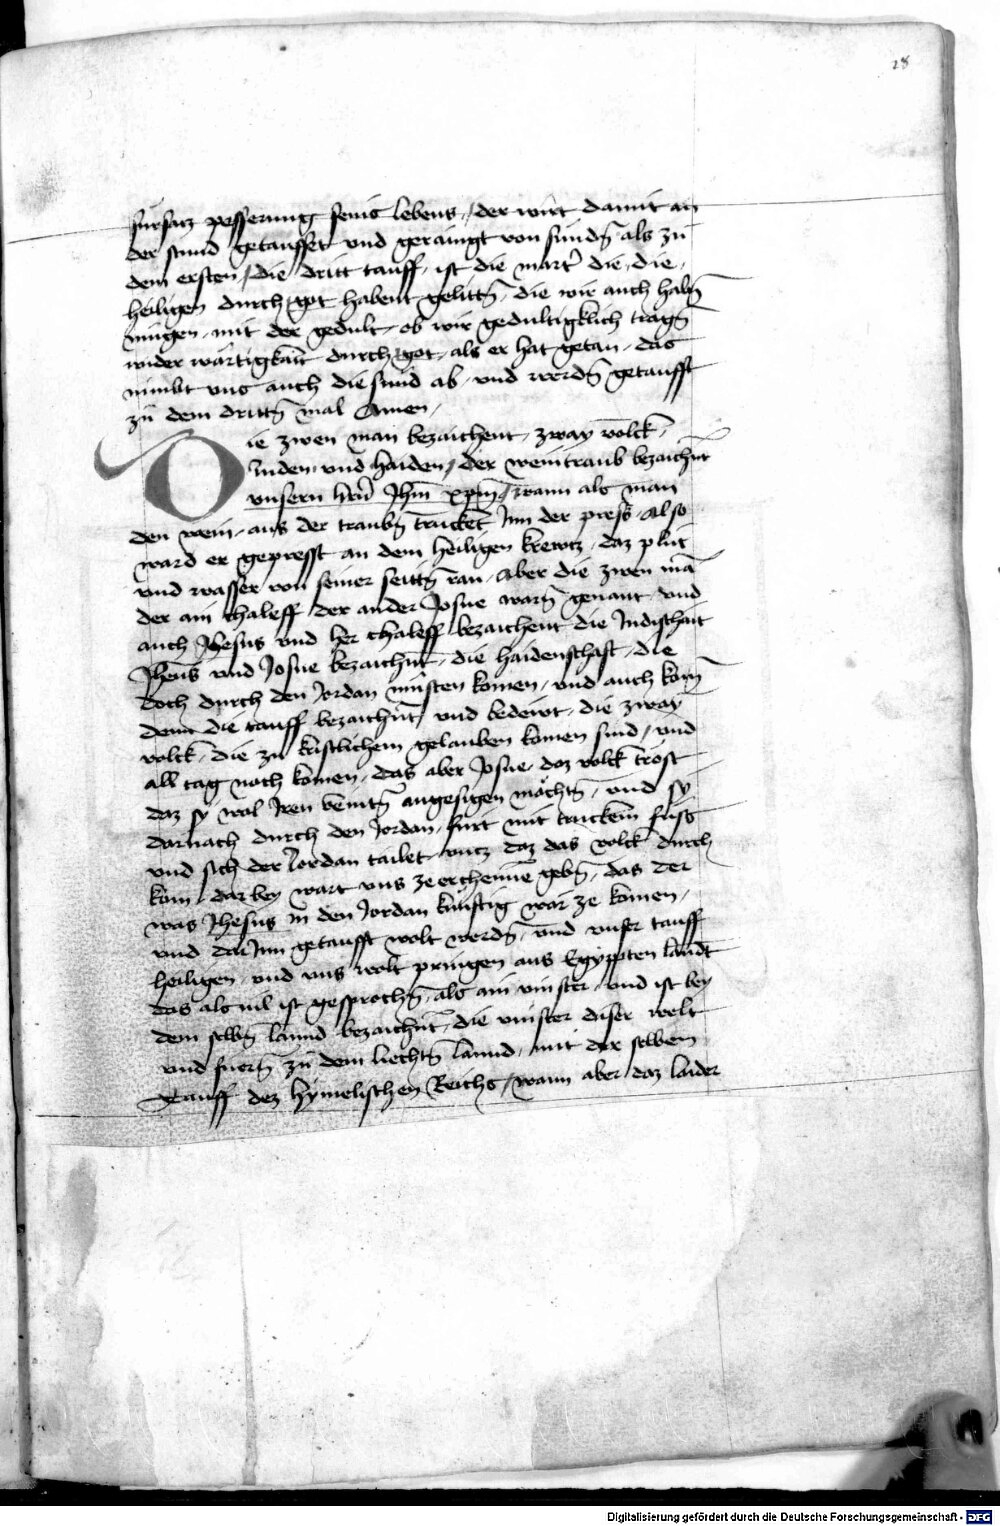 28
fürsatz pesserung seins lebens, der wirt damit an
der stund getauffet vnd gerainigt von sündn̄ als zu
dem ersten, die dritt tauff, ist die martˀ die, die,
heiligen durch got habent gelittn̄, die wir auch habn̄
mügen, mit der gedult, ob wir gedultigklich tragn̄
wider wärtigkait durch got, als er hat getan, das
nimbt vns auch die sünd ab, vnd werdn̄ getaufft
zu dem drittn̄ mal Amen,
Die zwen man bezaichent, zway volck,
Juden, vnd haiden, der weintraub bezaichn̄t
vnsern hˀrn Jhm̄ xpm̄, wann als man
den wein, aus der traubn̄ trucket Inn der press, also
ward er gepresst an dem heiligen krewtz, daz plut
vnd wasser von seiner seittn̄ ran, Aber die zwen mā
der ain Chaleff der ander Josue warn̄ genant, vnd
auch Jhesus vnd her Chaleff bezaichent die Judischait
Jhesus vnd Josue bezaichn̄t, die haidenschaft, die
doch durch den Jordan müsten komen, vnd auch kom̄
denn die tauff bezaichn̄t, vnd bedewt, die zway
volck, die zu kristlichem gelauben komen sind, vnd
all tag noch komen, das aber Josue, daz volck tröst
daz sy wol Iren veintn̄ angesigen möchtn̄, vnd sy
darnach durch den Jordan, fürt mit truckem fuss
vnd sich der Jordan tailet, vntz daz das volck durch
kom, dar bey wart vns ze erchennē gebn̄, das der
was Jhesus in den Jordan künftig wär ze komen,
vnd dar Inn getaufft wolt werdn̄, vnd vnser tauff
heiligen, vnd vns wolt pringen aus Egyppten landt
das als vil ist gesprochn̄, als ain vinster, vnd ist bey
dem selbn̄ lannd bezaichn̄t, die vinster diser welt
vnd fuern̄ zu dem liechtn̄ lannd, mit der selben
Tauff dez hymelischen Reichs, wann aber, daz laider
Digitalisierung gefördert durch die Deutsche Forschungsgemeinschaft - DFG